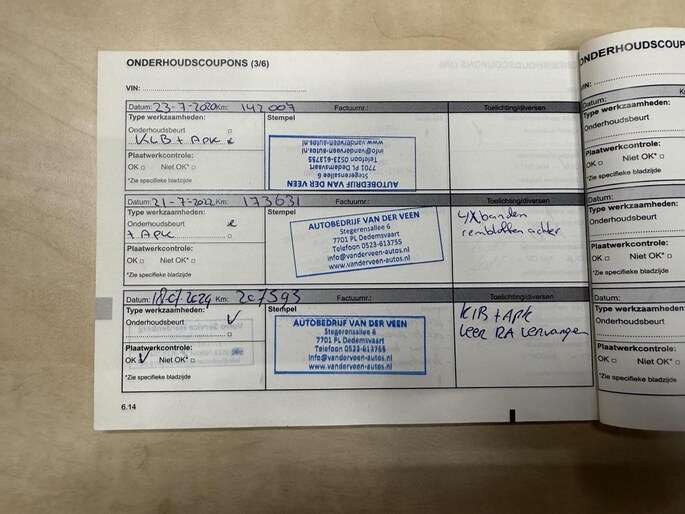 ONDERHOUDSCOUPONS (3/6)
VIN:
Datum: 23-7-2020 Km: 142007 Factuurnr.: Toelichting/diversen
Type werkzaamheden: Stempel
Onderhoudsbeurt
KLB + APK
Plaatwerkcontrole:
OK Niet OK*
*Zie specifieke bladzijde
AUTOBEDRIJF VAN DER VEEN
Stegerensallee 6
7701 PL Dedemsvaart
Telefoon 0523-613755
info@vanderveen-autos.nl
www.vanderveen-autos.nl
Datum: 21-7-2022 Km: 173631 Factuurnr.: Toelichting/diversen
Type werkzaamheden: Stempel
Onderhoudsbeurt
+ APK
Plaatwerkcontrole:
OK Niet OK*
*Zie specifieke bladzijde
AUTOBEDRIJF VAN DER VEEN
Stegerensallee 6
7701 PL Dedemsvaart
Telefoon 0523-613755
info@vanderveen-autos.nl
www.vanderveen-autos.nl
4X banden
remblokken achter
Datum: Km: 207593 Factuurnr.: Toelichting/diversen
Type werkzaamheden: Stempel
Onderhoudsbeurt
Plaatwerkcontrole:
OK Niet OK*
*Zie specifieke bladzijde
AUTOBEDRIJF VAN DER VEEN
Stegerensallee 6
7701 PL Dedemsvaart
Telefoon 0523-613755
info@vanderveen-autos.nl
www.vanderveen-autos.nl
KLB + APK
veer RA vervangen
6.14
ONDERHOUDSCOUP
VIN:
Datum:
Type werkzaamheden:
Onderhoudsbeurt
Plaatwerkcontrole:
OK Niet OK*
*Zie specifieke bladzijde
Datum:
Type werkzaamheden:
Onderhoudsbeurt
Plaatwerkcontrole:
OK Niet OK*
*Zie specifieke bladzijde
Datum:
Type werkzaamheden:
Onderhoudsbeurt
Plaatwerkcontrole:
OK Niet OK*
*Zie specifieke bladzijde